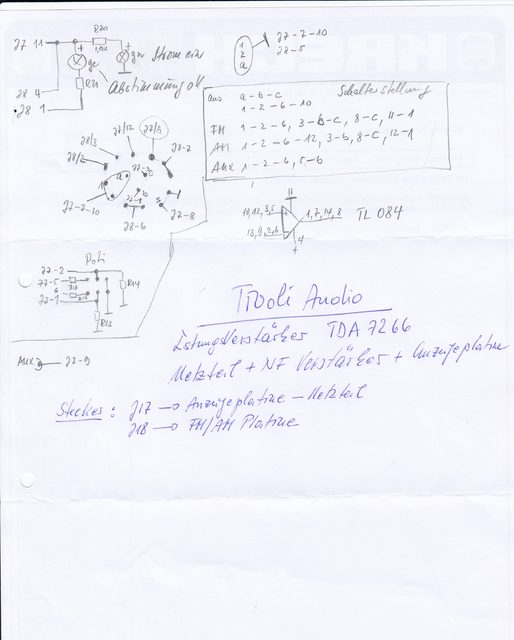 R20
J7 11
1,0K
gn Strom ein
ge
Abstimmung ok
R21
J8 4
J8 1
1
2
a
J7-2-10
J8-5
Schalterstellung
aus a-b-c
1-2-6-10
FM 1-2-6, 3-b-c, 8-c, 11-1
AM 1-2-6-12, 3-b, 8-c, 12-1
Aux 1-2-6, 5-b
J7/12
J8/3
J8-2
J8/2
a
b
J7-2-10
J8-6
J7-8
11
10,12,3,5
1,7,14,8
TL 084
13,9,2,6
4
Poti
J7-2
J7-5
R14
J7-1
R13
AUX J7-9
Tivoli Audio
Leistungsverstärker TDA 7266
Netzteil + NF Verstärker + Anzeigeplatine
Stecker: J17 → Anzeigeplatine – Netzteil
J18 → FM/AM Platine